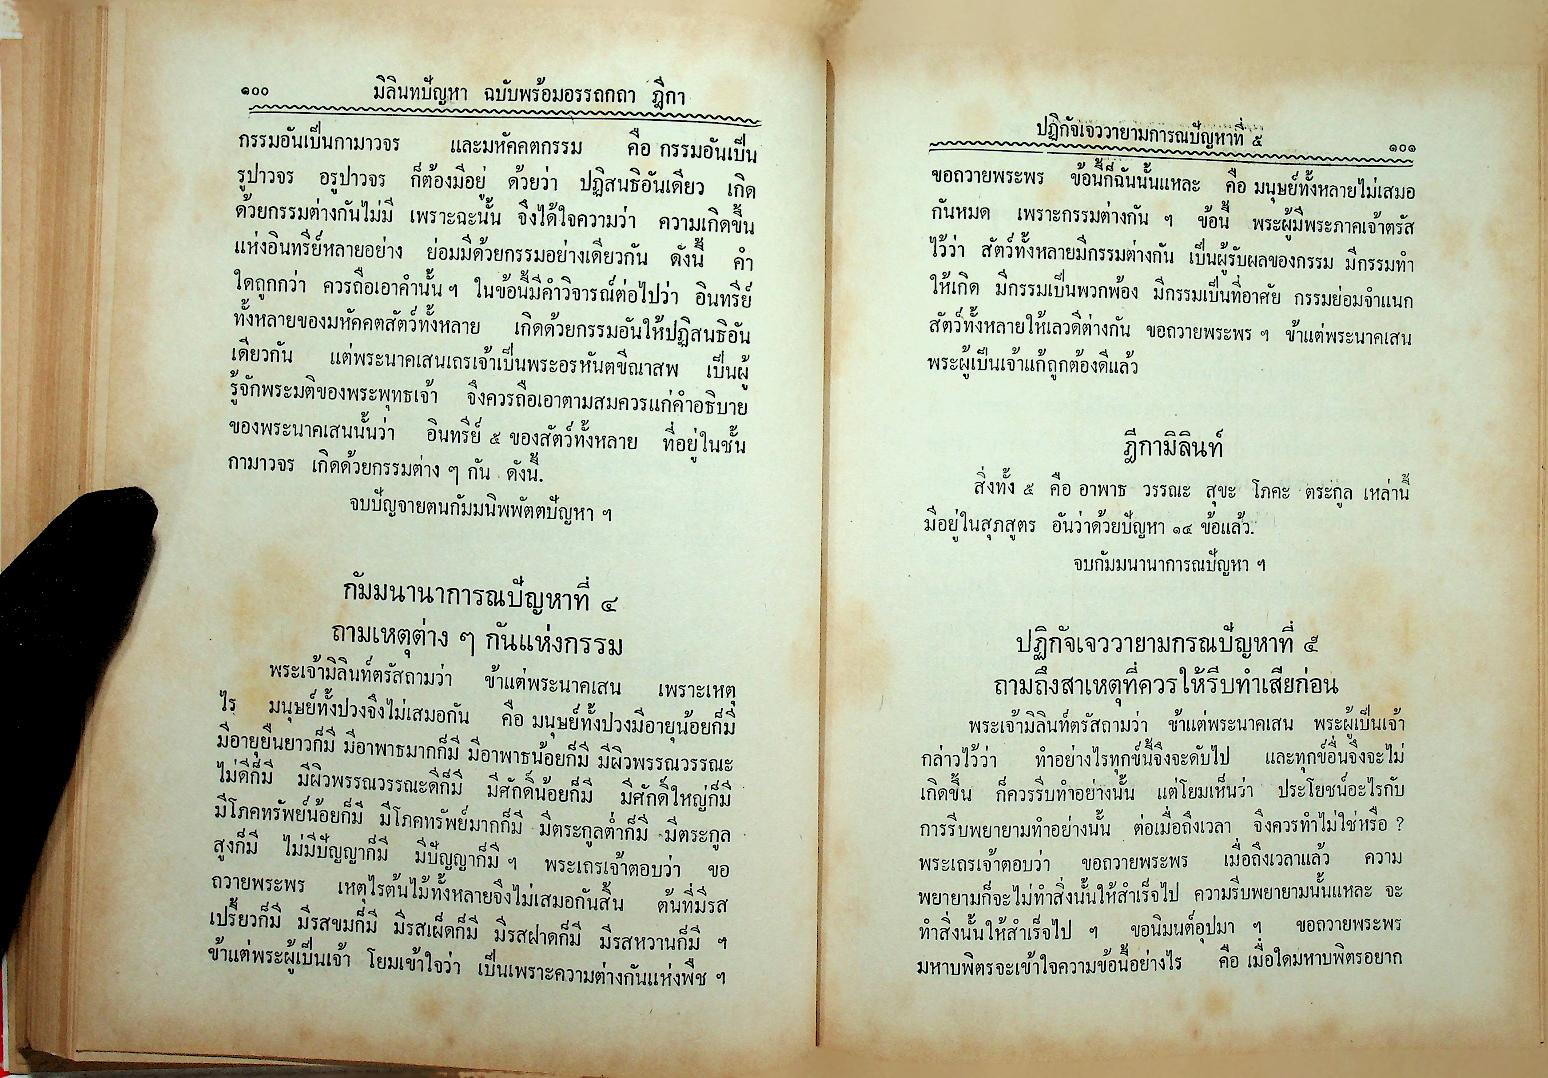 ๑๐๐ มิลินทปัญหา ฉบับพร้อมอรรถกถา ฎีกา
กรรมอันเป็นกามาวจร และมหัคคตกรรม คือ กรรมอันเป็น
รูปาวจร อรูปาวจร ก็ต้องมีอยู่ ด้วยว่า ปฏิสนธิอันเดียว เกิด
ด้วยกรรมต่างกันไม่มี เพราะฉะนั้น จึงได้ใจความว่า ความเกิดขึ้น
แห่งอินทรีย์หลายอย่าง ย่อมมีด้วยกรรมอย่างเดียวกัน ดังนี้ คำ
ใดถูกกว่า ควรถือเอาคำนั้น ฯ ในข้อนี้มีคำวิจารณ์ต่อไปว่า อินทรีย์
ทั้งหลายของมหัคคตสัตว์ทั้งหลาย เกิดด้วยกรรมอันให้ปฏิสนธิอัน
เดียวกัน แต่พระนาคเสนเถรเจ้าเป็นพระอรหันตขีณาสพ เป็นผู้
รู้จักพระมติของพระพุทธเจ้า จึงควรถือเอาตามสมควรแก่คำอธิบาย
ของพระนาคเสนนั้นว่า อินทรีย์ ๕ ของสัตว์ทั้งหลาย ที่อยู่ในชั้น
กามาวจร เกิดด้วยกรรมต่าง ๆ กัน ดังนี้.
จบปัญจายตนกัมมนิพพัตตปัญหา ฯ
กัมมนานาการณปัญหาที่ ๔
ถามเหตุต่าง ๆ กันแห่งกรรม
พระเจ้ามิลินท์ตรัสถามว่า ข้าแต่พระนาคเสน เพราะเหตุ
ไร มนุษย์ทั้งปวงจึงไม่เสมอกัน คือ มนุษย์ทั้งปวงมีอายุน้อยก็มี
มีอายุยืนยาวก็มี มีอาพาธมากก็มี มีอาพาธน้อยก็มี มีผิวพรรณวรรณะ
ไม่ดีก็มี มีผิวพรรณวรรณะดีก็มี มีศักดิ์น้อยก็มี มีศักดิ์ใหญ่ก็มี
มีโภคทรัพย์น้อยก็มี มีโภคทรัพย์มากก็มี มีตระกูลต่ำก็มี มีตระกูล
สูงก็มี ไม่มีปัญญาก็มี มีปัญญาก็มี ฯ พระเถรเจ้าตอบว่า ขอ
ถวายพระพร เหตุไรต้นไม้ทั้งหลายจึงไม่เสมอกันสิ้น ต้นที่มีรส
เปรี้ยวก็มี มีรสขมก็มี มีรสเผ็ดก็มี มีรสฝาดก็มี มีรสหวานก็มี ฯ
ข้าแต่พระผู้เป็นเจ้า โยมเข้าใจว่า เป็นเพราะความต่างกันแห่งพืช ฯ
ปฏิกัจเจววายามการณปัญหาที่ ๕ ๑๐๑
ขอถวายพระพร ข้อนี้ก็ฉันนั้นแหละ คือ มนุษย์ทั้งหลายไม่เสมอ
กันหมด เพราะกรรมต่างกัน ฯ ข้อนี้ พระผู้มีพระภาคเจ้าตรัส
ไว้ว่า สัตว์ทั้งหลายมีกรรมต่างกัน เป็นผู้รับผลของกรรม มีกรรมทำ
ให้เกิด มีกรรมเป็นพวกพ้อง มีกรรมเป็นที่อาศัย กรรมย่อมจำแนก
สัตว์ทั้งหลายให้เลวดีต่างกัน ขอถวายพระพร ฯ ข้าแต่พระนาคเสน
พระผู้เป็นเจ้าแก้ถูกต้องดีแล้ว
ฎีกามิลินท์
สิ่งทั้ง ๕ คือ อาพาธ วรรณะ สุขะ โภคะ ตระกูล เหล่านี้
มีอยู่ในสุภสูตร อันว่าด้วยปัญหา ๑๔ ข้อแล้ว.
จบกัมมนานาการณปัญหา ฯ
ปฏิกัจเจววายามกรณปัญหาที่ ๕
ถามถึงสาเหตุที่ควรให้รีบทำเสียก่อน
พระเจ้ามิลินท์ตรัสถามว่า ข้าแต่พระนาคเสน พระผู้เป็นเจ้า
กล่าวไว้ว่า ทำอย่างไรทุกข์นี้จึงจะดับไป และทุกข์อื่นจึงจะไม่
เกิดขึ้น ก็ควรรีบทำอย่างนั้น แต่โยมเห็นว่า ประโยชน์อะไรกับ
การรีบพยายามทำอย่างนั้น ต่อเมื่อถึงเวลา จึงควรทำไม่ใช่หรือ ?
พระเถรเจ้าตอบว่า ขอถวายพระพร เมื่อถึงเวลาแล้ว ความ
พยายามก็จะไม่ทำสิ่งนั้นให้สำเร็จไป ความรีบพยายามนั้นแหละ จะ
ทำสิ่งนั้นให้สำเร็จไป ฯ ขอนิมนต์อุปมา ฯ ขอถวายพระพร
มหาบพิตรจะเข้าใจความข้อนี้อย่างไร คือ เมื่อใดมหาบพิตรอยาก